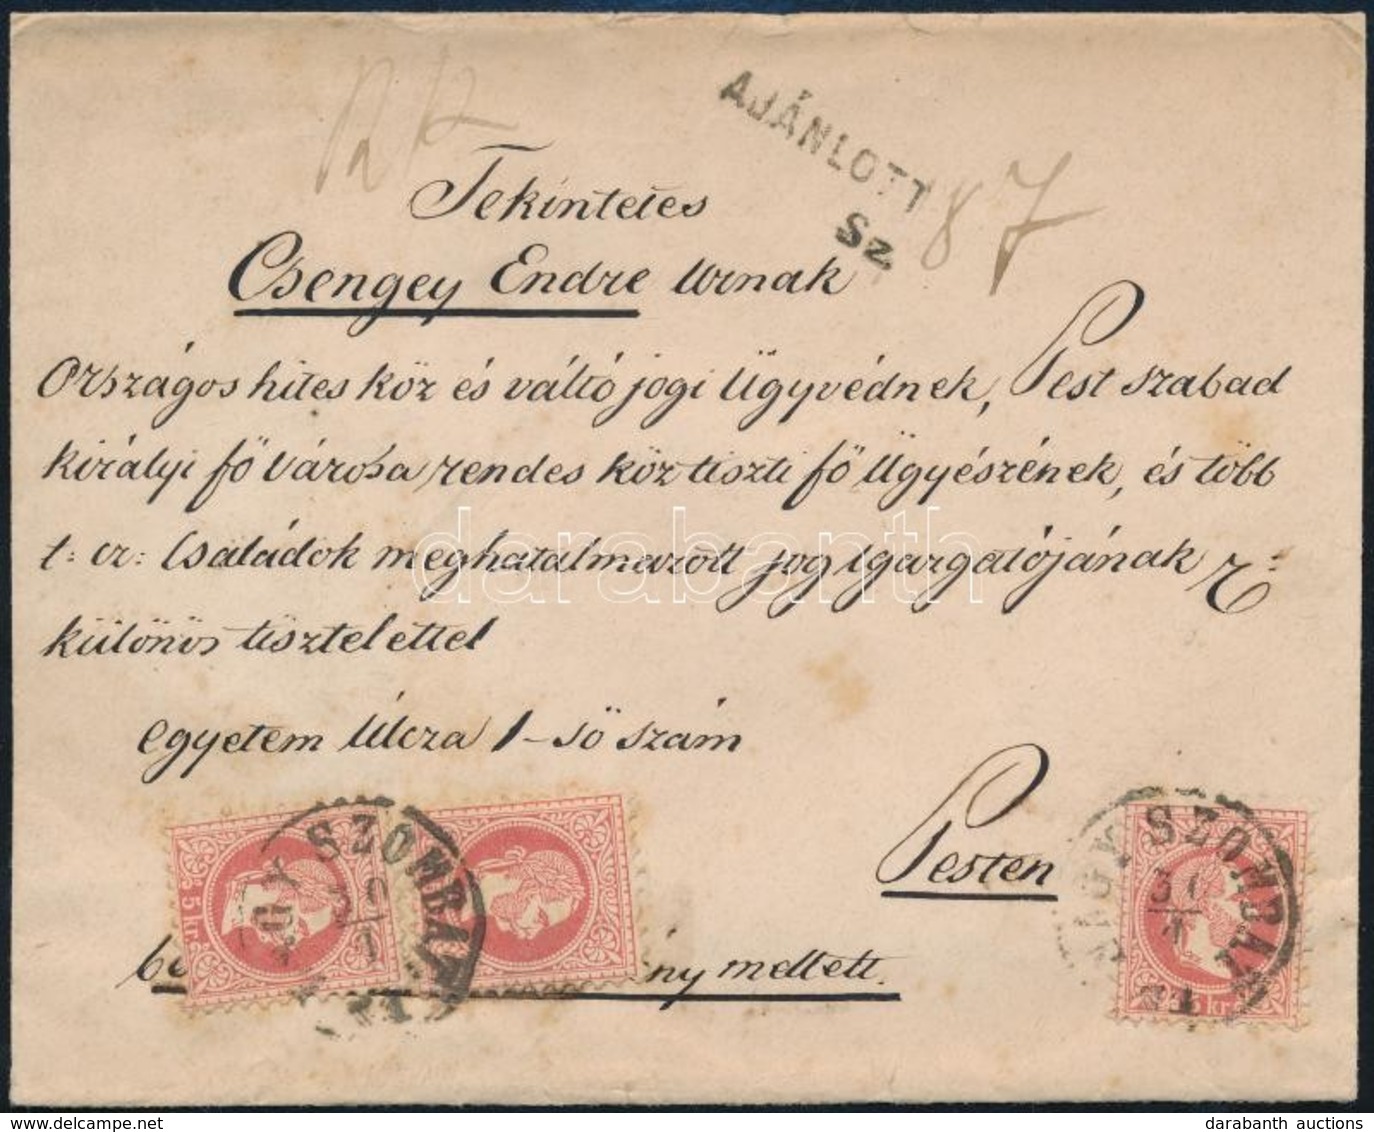 AJÁNLOTT
Sz. 87
Tekintetes
Csengey Endre Urnak
Országos hites köz és váltó jogi Ügyvédnek, Pest szabad
királyi fő Városa rendes köz tiszti fő Ügyészének, és több
t: cz: Családok meghatalmazott jog Igazgatójának
különös tisztelettel
egyetem Útcza 1-ső szám
Pesten
mellett.
NAGY SZOMBAT
5 kr.
NAGY SZOMBAT
5 kr.
darabanth
darabanth auctions